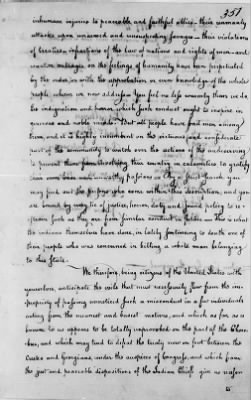 351
inhuman injuries to peaceable and faithful allies - their unmanly
attacks upon unarmed and unsuspecting savages - their violations
of treaties, infractions of the law of nations and rights of men - and
wanton outrages on the feelings of humanity have been perpetrated
by the order, or with the approbation, or even knowledge of the whole
people, whom we now address. You feel no less warmly than we do,
the indignation and horror which such conduct ought to inspire in
generous and noble minds. But all people have bad men among
them, and it is highly incumbent on the virtuous and considerate
part of the community to watch over the actions of the undeserving
to prevent them from involving their country in calamities to gratify
their own base and unworthy passions. If any of such
you may find out the persons who come within this description, and you
are bound by every tie of justice, honor, duty and sound policy to re-
strain such as they are from similar conduct in future. This is what
the Indians themselves have done, in lately sentencing to death one of
their people who was concerned in killing a white man belonging
to this State.
We therefore, being citizens of the United States with
yourselves, anticipate the evils that must necessarily flow from the im-
propriety of passing unnoticed such a misconduct in a few individuals
acting from the meanest and basest motives, and which as far as is
known to us appears to be totally unprovoked on the part of the Chero-
kees, and which may tend to defeat the treaty now on foot between the
Creeks and Georgians, under the auspices of Congress, and which from
the just and peaceable dispositions of the Indian Chiefs give us reason
to